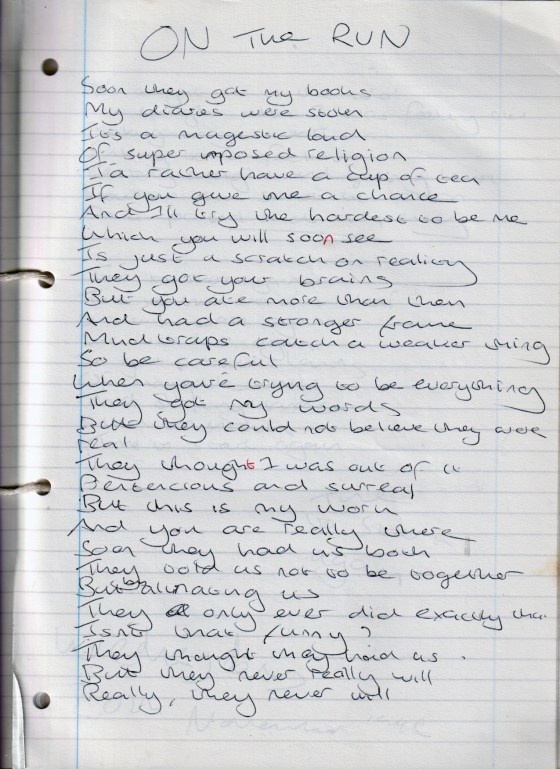 ON THE RUN
Soon they got my books
My diaries were stolen
It's a magestic load
Of super imposed religion
I'd rather have a cup of tea
If you give me a chance
And I'll try the hardest to be me
Which you will soon see
Is just a scratch on reality
They got your brains
But you ate more than them
And had a stronger frame
Mind traps catch a weaker thing
So be careful
When you're trying to be everything
They got my words
But they could not believe they were
real
They thought I was out of it
Pentencious and surreal
But this is my work
And you are really there
Soon they had us both
They told us not to be together
But by alinating us
They only ever did exactly that
Isn't that funny?
They thought they had us.
But they never really will
Really, they never will